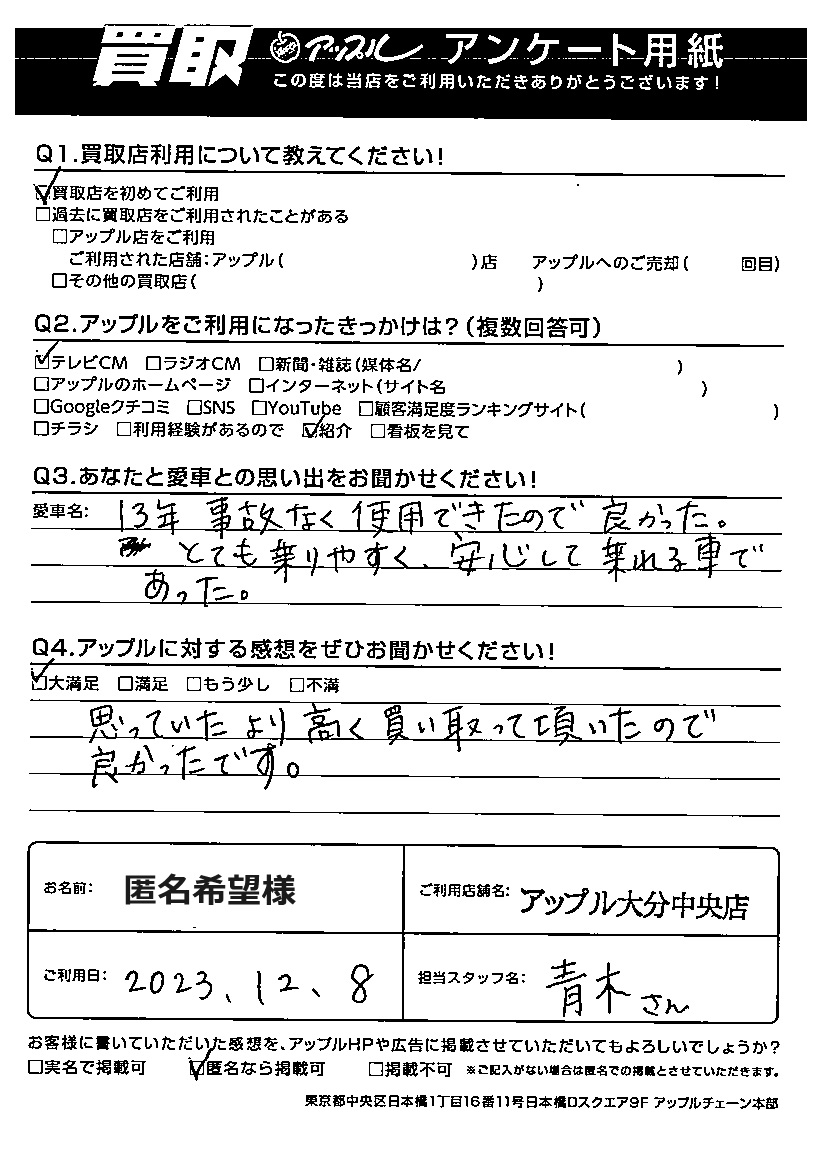 買取 アップル アンケート用紙
この度は当店をご利用いただきありがとうございます!
Q1.買取店利用について教えてください!
☑買取店を初めてご利用
□過去に買取店をご利用されたことがある
□アップル店をご利用
ご利用された店舗:アップル( )店 アップルへのご売却( 回目)
□その他の買取店( )
Q2.アップルをご利用になったきっかけは?(複数回答可)
☑テレビCM □ラジオCM □新聞・雑誌(媒体名/ )
□アップルのホームページ □インターネット(サイト名 )
□Googleクチコミ □SNS □YouTube □顧客満足度ランキングサイト( )
□チラシ □利用経験があるので ☑紹介 □看板を見て
Q3.あなたと愛車との思い出をお聞かせください!
愛車名: 13年 事故なく使用できたので 良かった。
とても乗りやすく、安心して 乗れる車で
あった。
Q4.アップルに対する感想をぜひお聞かせください!
☑大満足 □満足 □もう少し □不満
思っていたより高く買い取って頂いたので
良かったです。
お名前: 匿名希望様 ご利用店舗名: アップル大分中央店
ご利用日: 2023、12、8 担当スタッフ名: 青木さん
お客様に書いていただいた感想を、アップルHPや広告に掲載させていただいてもよろしいでしょうか?
□実名で掲載可 ☑匿名なら掲載可 □掲載不可 ※ご記入がない場合は匿名での掲載とさせていただきます。
東京都中央区日本橋1丁目16番11号日本橋Dスクエア9F アップルチェーン本部